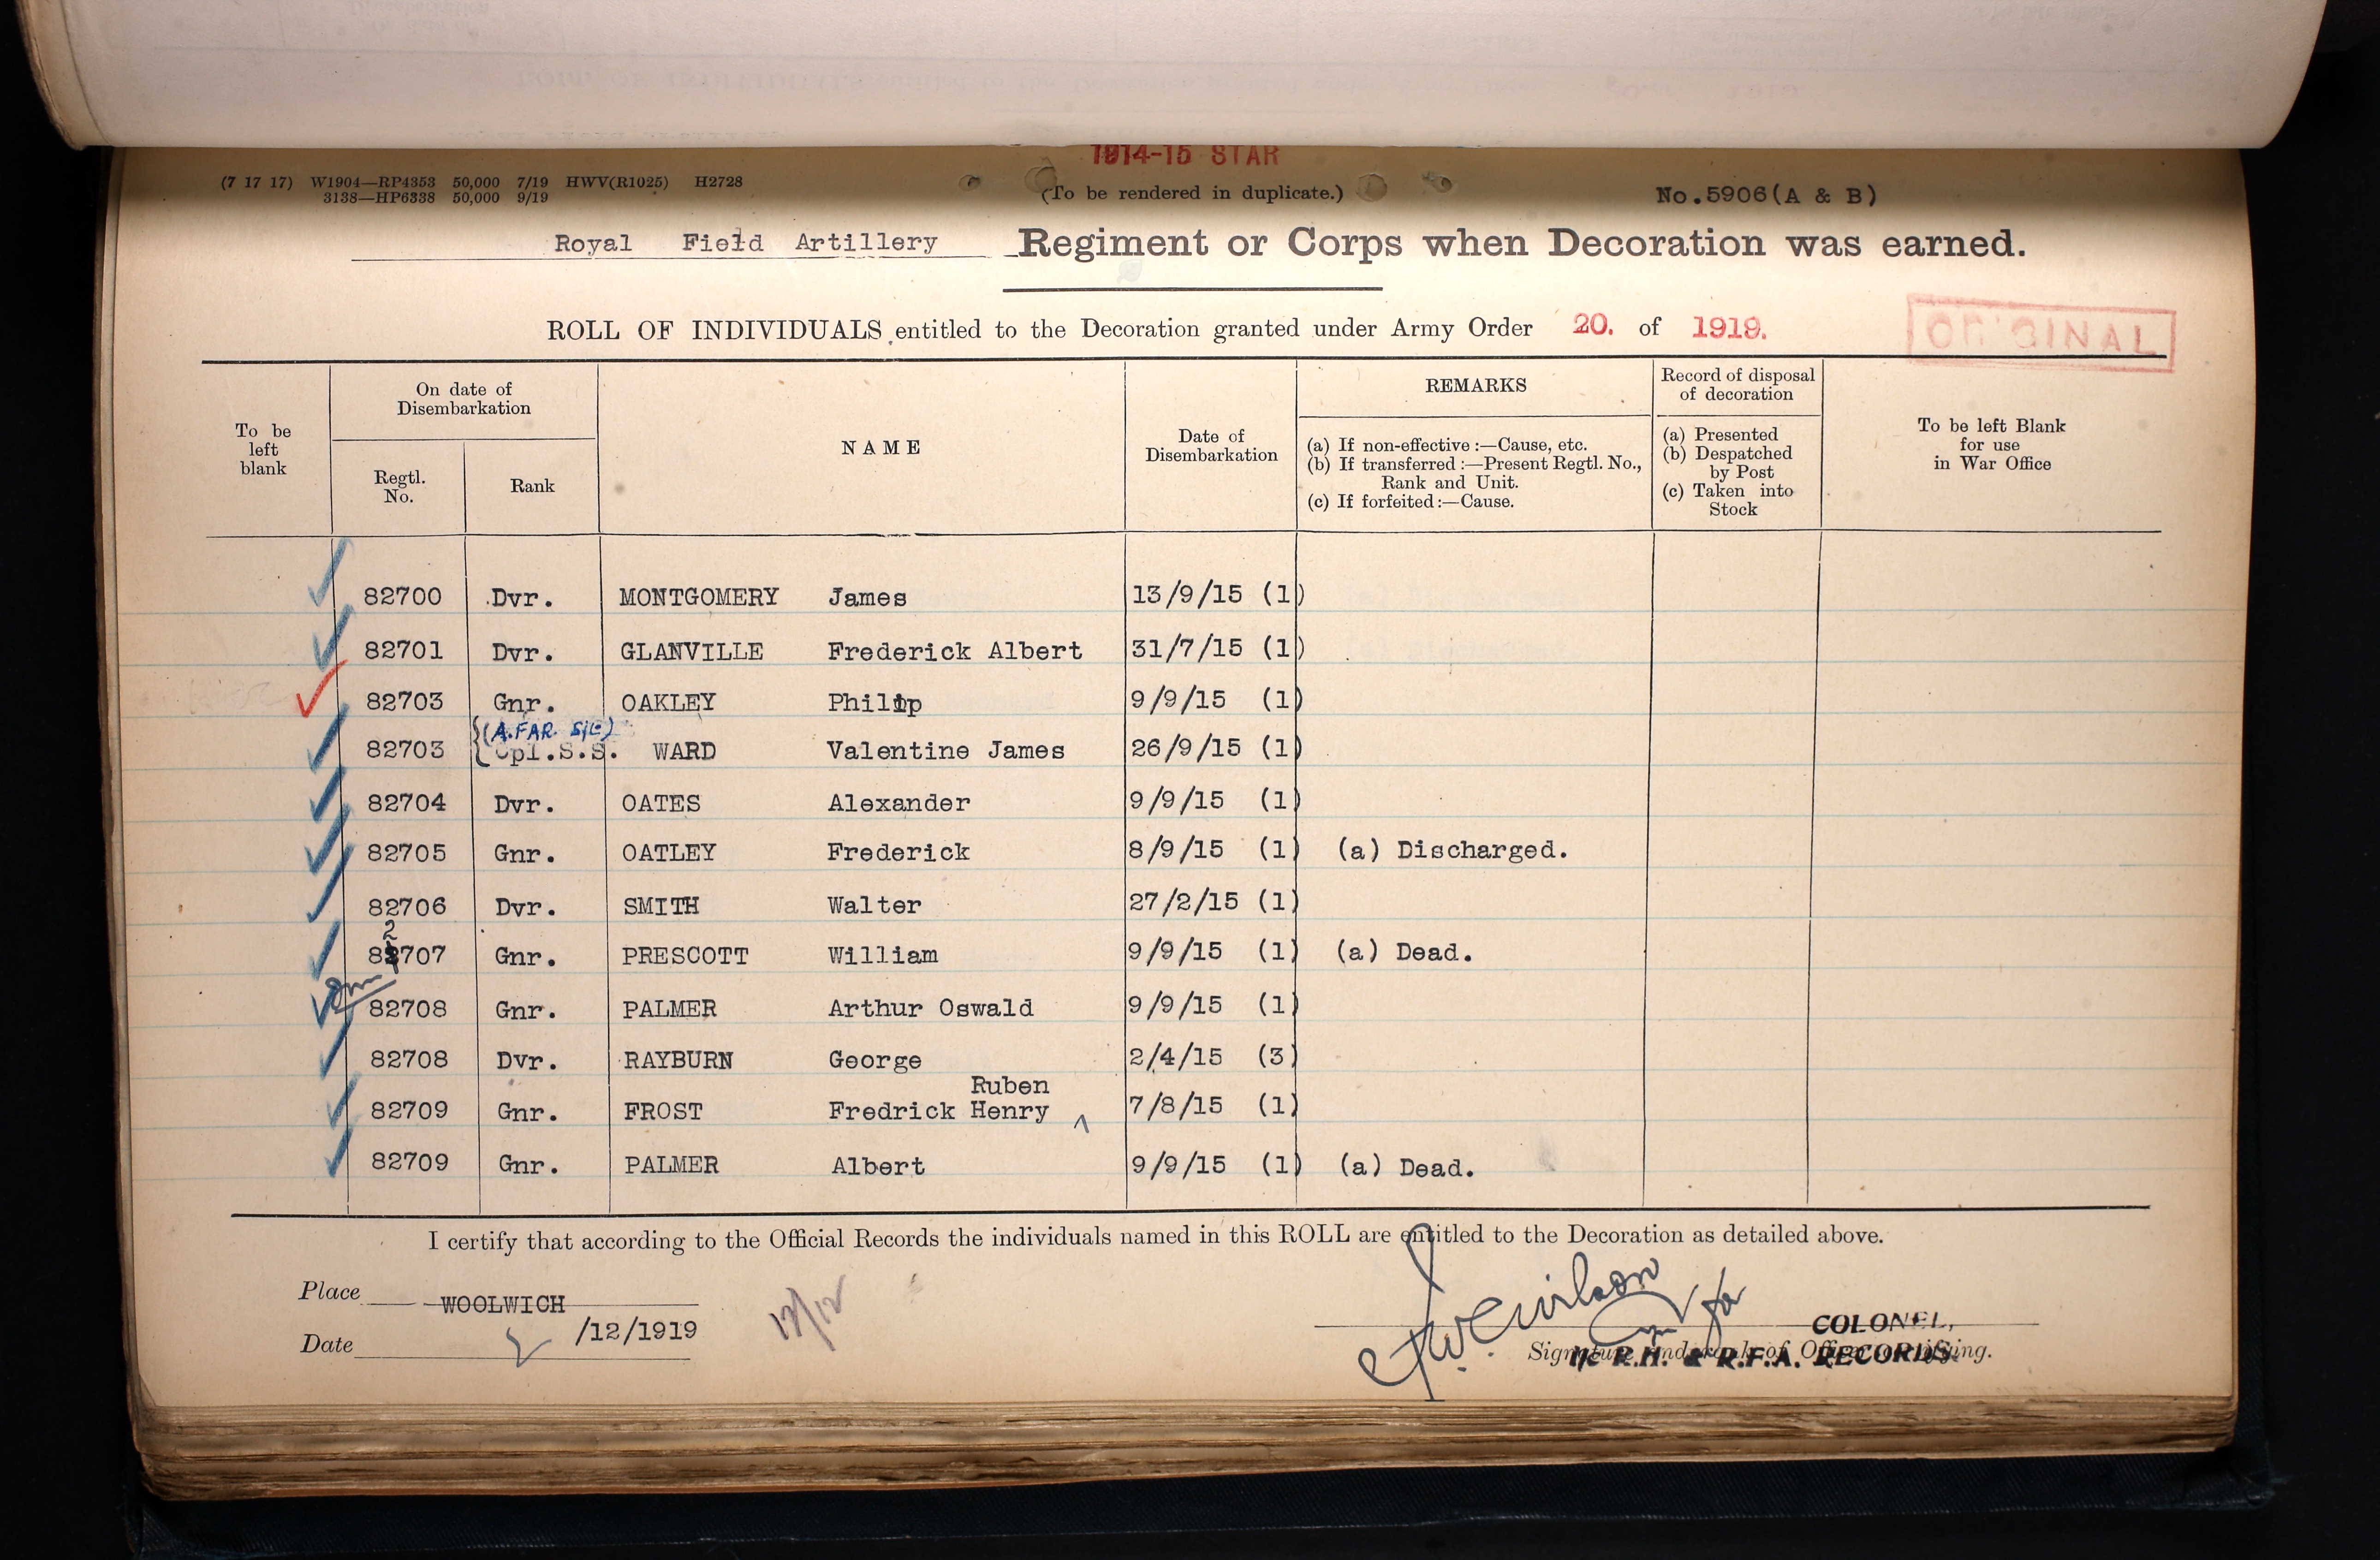 1914-15 STAR
(7 17 17) W1904—RP4353 50,000 7/19 HWV(R1025) H2728
3138—HP6338 50,000 9/19
(To be rendered in duplicate.)
No.5906(A & B)
Royal Field Artillery Regiment or Corps when Decoration was earned.
ROLL OF INDIVIDUALS entitled to the Decoration granted under Army Order 20. of 1919.
ORIGINAL
To be left blank
On date of Disembarkation
Regtl. No.
Rank
NAME
Date of Disembarkation
REMARKS
(a) If non-effective :—Cause, etc.
(b) If transferred :—Present Regtl. No., Rank and Unit.
(c) If forfeited :—Cause.
Record of disposal of decoration
(a) Presented
(b) Despatched by Post
(c) Taken into Stock
To be left Blank for use in War Office
82700 Dvr. MONTGOMERY James 13/9/15 (1)
82701 Dvr. GLANVILLE Frederick Albert 31/7/15 (1)
82703 Gnr. OAKLEY Philip 9/9/15 (1)
(A.FAR. S/C)
82703 Cpl.S.S. WARD Valentine James 26/9/15 (1)
82704 Dvr. OATES Alexander 9/9/15 (1)
82705 Gnr. OATLEY Frederick 8/9/15 (1) (a) Discharged.
82706 Dvr. SMITH Walter 27/2/15 (1)
2
82707 Gnr. PRESCOTT William 9/9/15 (1) (a) Dead.
82708 Gnr. PALMER Arthur Oswald 9/9/15 (1)
82708 Dvr. RAYBURN George 2/4/15 (3)
Ruben
82709 Gnr. FROST Fredrick Henry 7/8/15 (1)
82709 Gnr. PALMER Albert 9/9/15 (1) (a) Dead.
I certify that according to the Official Records the individuals named in this ROLL are entitled to the Decoration as detailed above.
Place WOOLWICH
Date 2 /12/1919
COLONEL,
Signature and rank of Officer certifying.
I/C R.H. & R.F.A. RECORDS.